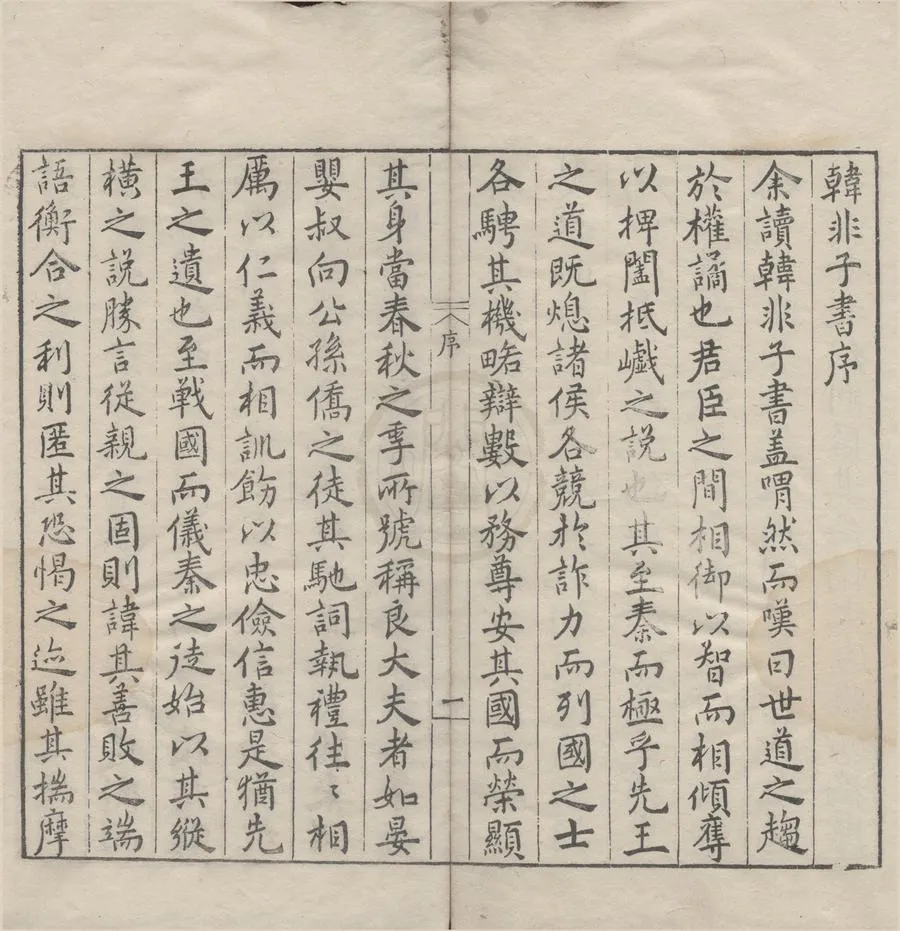 韓非子書序
余讀韓非子書盖喟然而嘆曰世道之趨
於權譎也君臣之間相御以智而相傾奪
以捭闔抵巇之説也其至秦而極乎先王
之道既熄諸侯各競於詐力而列國之士
各騁其機略辯數以務尊安其國而榮顯
序
一
其身當春秋之季所號稱良大夫者如晏
嬰叔向公孫僑之徒其馳詞執禮往〻相
厲以仁義而相訓飭以忠儉信惠是猶先
王之遺也至戰國而儀秦之徒始以其縱
橫之説勝言從親之固則諱其善敗之端
語衡合之利則匿其恐愒之迹雖其揣摩